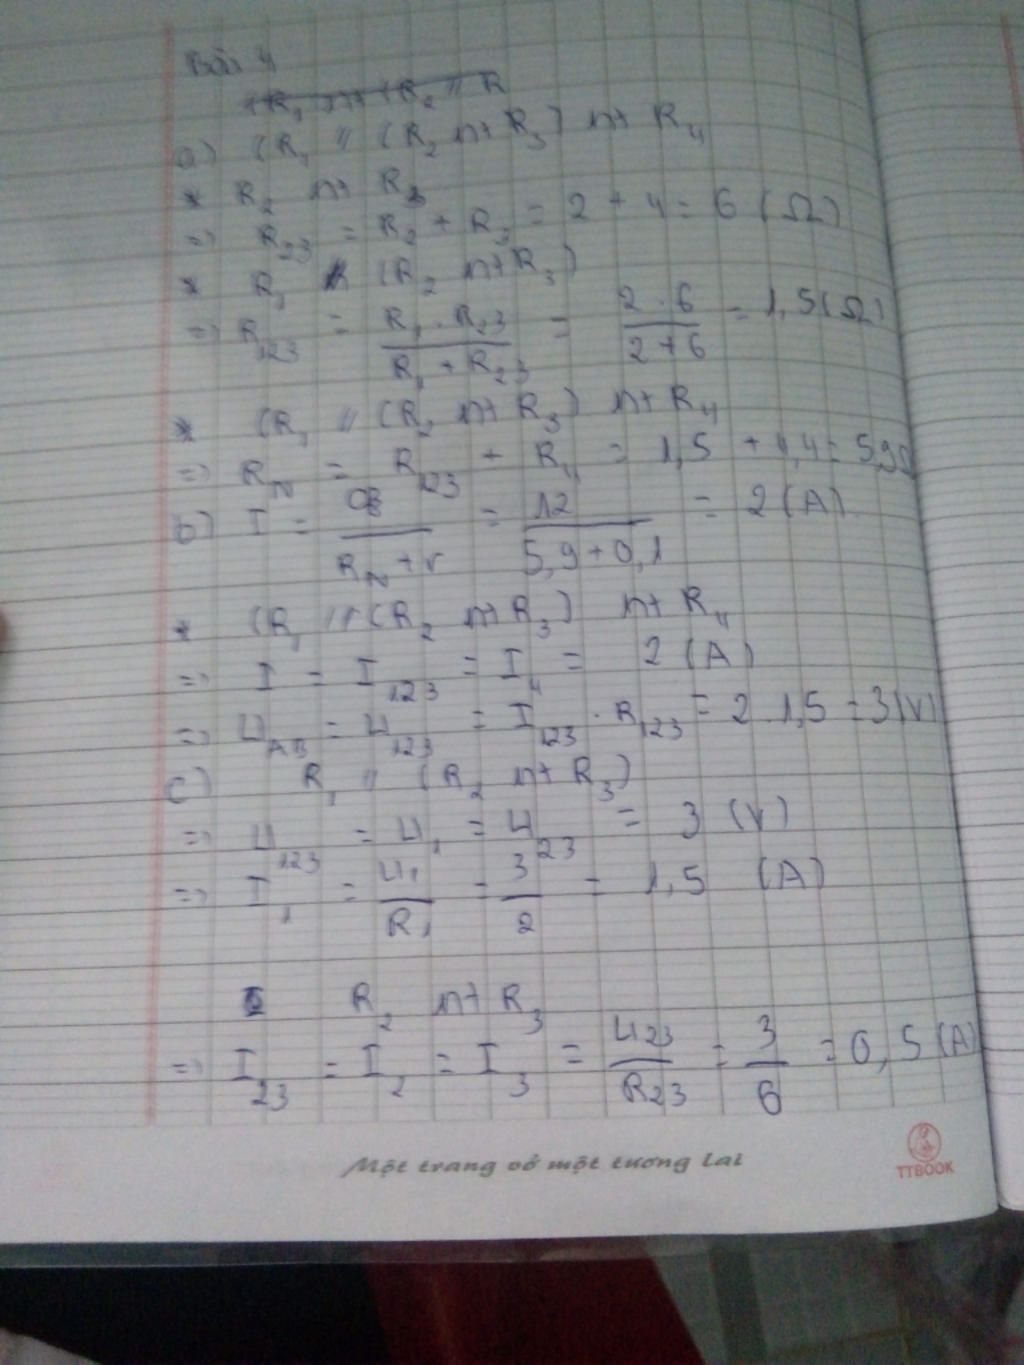 Bài 4
a) (R₁ // (R₂ nt R₃) nt R₄
* R₂ nt R₃
=> R₂₃ = R₂ + R₃ = 2 + 4 = 6 (Ω)
* R₁ // (R₂ nt R₃)
=> R₁₂₃ = (R₁ . R₂₃)/(R₁ + R₂₃) = (2 . 6)/(2 + 6) = 1,5 (Ω)
* (R₁ // (R₂ nt R₃) nt R₄
=> R_N = R₁₂₃ + R₄ = 1,5 + 4,4 = 5,9Ω
b) I = /(R_N + r) = 12/(5,9 + 0,1) = 2 (A)
* (R₁ // (R₂ nt R₃) nt R₄
=> I = I₁₂₃ = I₄ = 2 (A)
=> U_AB = U₁₂₃ = I₁₂₃ . R₁₂₃ = 2 . 1,5 = 3 (V)
c) R₁ // (R₂ nt R₃)
=> U₁₂₃ = U₁ = U₂₃ = 3 (V)
=> I₁ = U₁/R₁ = 3/2 = 1,5 (A)
R₂ nt R₃
=> I₂₃ = I₂ = I₃ = U₂₃/R₂₃ = 3/6 = 0,5 (A)
Một trang vở một tương lai
TTBOOK